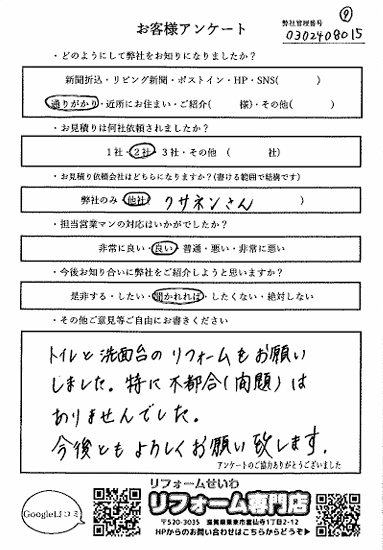 ⑨
お客様アンケート
弊社管理番号
0302408015
・どのようにして弊社をお知りになりましたか？
新聞折込・リビング新聞・ポストイン・HP・SNS(　　　)
通りがかり・近所にお住まい・ご紹介(　　　様)・その他(　　　)
・お見積りは何社依頼されましたか？
1社・2社・3社・その他　(　　　社)
・お見積り依頼会社はどちらになりますか？(書ける範囲で結構です)
弊社のみ・他社(クサネンさん　　　)
・担当営業マンの対応はいかがでしたか？
非常に良い・良い・普通・悪い・非常に悪い
・今後お知り合いに弊社をご紹介しようと思いますか？
是非する・したい・聞かれれば・したくない・絶対しない
・その他ご意見等ご自由にお書きください
トイレと洗面台のリフォームをお願い
しました。特に不都合(問題)は
ありませんでした。
今後ともよろしくお願い致します。
アンケートのご協力ありがとうございました
Google口コミ
リフォームせいわ
リフォーム専門店
〒520-3035　滋賀県栗東市霊仙寺1丁目2-12
HPからのお問い合わせはこちらからどうぞ▶